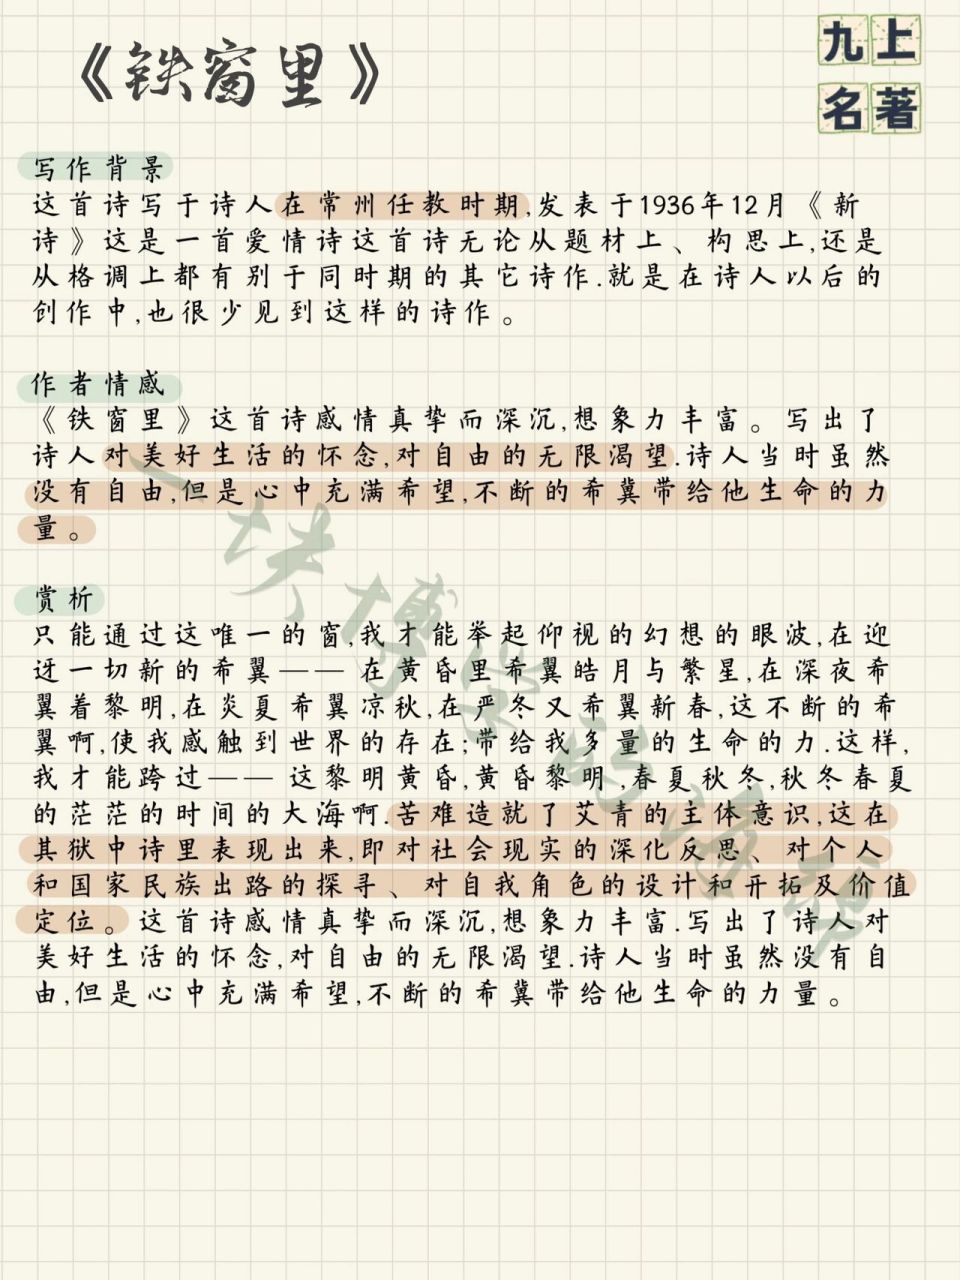 《铁窗里》
九上
名著
写作背景
这首诗写于诗人在常州任教时期,发表于1936年12月《新
诗》这是一首爱情诗这首诗无论从题材上、构思上,还是
从格调上都有别于同时期的其它诗作.就是在诗人以后的
创作中,也很少见到这样的诗作。
作者情感
《铁窗里》这首诗感情真挚而深沉,想象力丰富。写出了
诗人对美好生活的怀念,对自由的无限渴望.诗人当时虽然
没有自由,但是心中充满希望,不断的希冀带给他生命的力
量。
赏析
只能通过这唯一的窗,我才能举起仰视的幻想的眼波,在迎
迓一切新的希翼——在黄昏里希翼皓月与繁星,在深夜希
翼着黎明,在炎夏希翼凉秋,在严冬又希翼新春,这不断的希
翼啊,使我感触到世界的存在;带给我多量的生命的力.这样,
我才能跨过——这黎明黄昏,黄昏黎明,春夏秋冬,秋冬春夏
的茫茫的时间的大海啊.苦难造就了艾青的主体意识,这在
其狱中诗里表现出来,即对社会现实的深化反思、对个人
和国家民族出路的探寻、对自我角色的设计和开拓及价值
定位。这首诗感情真挚而深沉,想象力丰富.写出了诗人对
美好生活的怀念,对自由的无限渴望.诗人当时虽然没有自
由,但是心中充满希望,不断的希冀带给他生命的力量。